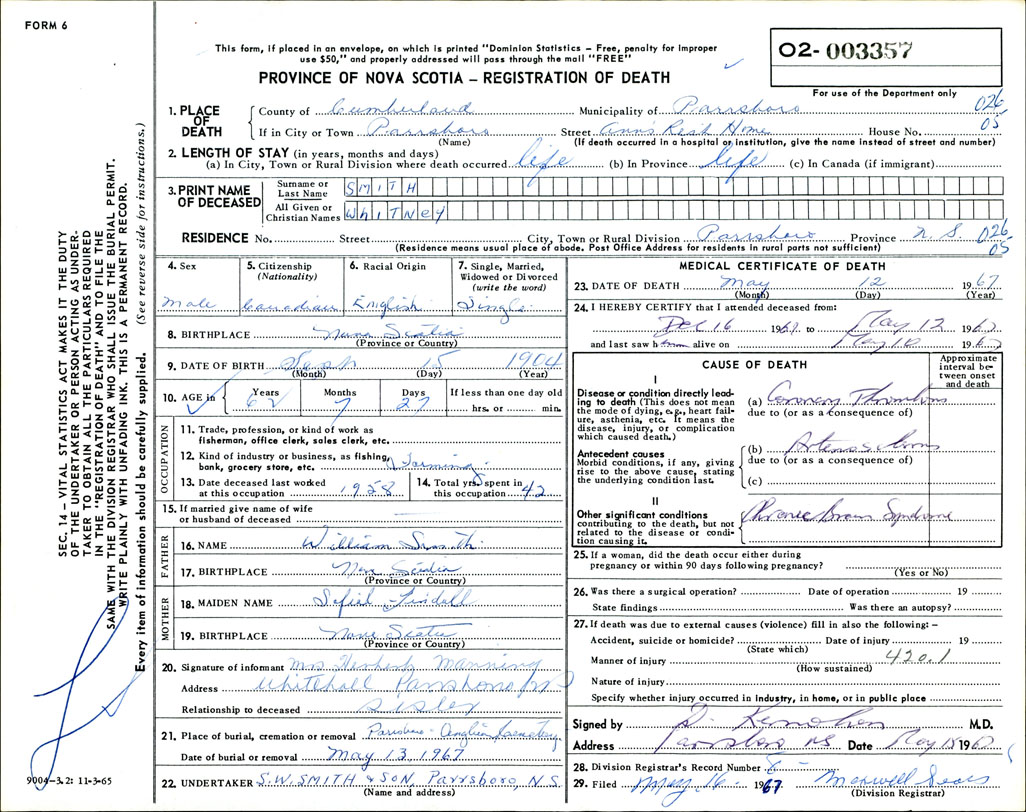 FORM 6
This form, if placed in an envelope, on which is printed "Dominion Statistics – Free, penalty for improper
use $50," and properly addressed will pass through the mail "FREE"
02-003357
PROVINCE OF NOVA SCOTIA – REGISTRATION OF DEATH
For use of the Department only
1. PLACE OF DEATH
County of Cumberland Municipality of Parrsboro 026
If in City or Town Parrsboro Street Ann's Rest Home House No. 05
(Name) (If death occurred in a hospital or institution, give the name instead of street and number)
2. LENGTH OF STAY (in years, months and days)
(a) In City, Town or Rural Division where death occurred life (b) In Province life (c) In Canada (if immigrant)
3. PRINT NAME OF DECEASED
Surname or Last Name SMITH
All Given or Christian Names WHITNEY
RESIDENCE No. Street City, Town or Rural Division Parrsboro Province N.S. 026
(Residence means usual place of abode. Post Office Address for residents in rural parts not sufficient) 05
4. Sex 5. Citizenship (Nationality) 6. Racial Origin 7. Single, Married, Widowed or Divorced (write the word)
Male Canadian English Single
8. BIRTHPLACE Nova Scotia
(Province or Country)
9. DATE OF BIRTH Sept 15 1904
(Month) (Day) (Year)
10. AGE in Years Months Days If less than one day old
62 7 27 hrs. or min.
OCCUPATION
11. Trade, profession or kind of work as
fisherman, office clerk, sales clerk, etc.
12. Kind of industry or business, as fishing,
bank, grocery store, etc. Farming
13. Date deceased last worked
at this occupation 1958
14. Total yrs. spent in
this occupation 42
15. If married give name of wife
or husband of deceased
FATHER
16. NAME William Smith
17. BIRTHPLACE Nova Scotia
(Province or Country)
MOTHER
18. MAIDEN NAME
19. BIRTHPLACE Nova Scotia
(Province or Country)
20. Signature of informant Mrs Herbert Manning
Address Whitehall Parrsboro NS
Relationship to deceased Sister
21. Place of burial, cremation or removal Parrsboro Anglican Cemetery
Date of burial or removal May 13 1967
22. UNDERTAKER S.W. SMITH & SON, Parrsboro, N.S.
(Name and address)
9004-3.2: 11-3-65
MEDICAL CERTIFICATE OF DEATH
23. DATE OF DEATH May 12 1967
(Month) (Day) (Year)
24. I HEREBY CERTIFY that I attended deceased from:
Dec 16 to May 12 1967
and last saw him alive on May 10 1967
CAUSE OF DEATH
Approximate interval between onset and death
I
Disease or condition directly leading to death (This does not mean the mode of dying, e.g., heart failure, asthenia, etc. It means the disease, injury, or complication which caused death.)
(a) Coronary Thrombosis
due to (or as a consequence of)
Antecedent causes
Morbid conditions, if any, giving rise to the above cause, stating the underlying condition last.
(b)
due to (or as a consequence of)
(c)
II
Other significant conditions
contributing to the death, but not related to the disease or condition causing it.
Chronic Brain Syndrome
25. If a woman, did the death occur either during
pregnancy or within 90 days following pregnancy?
(Yes or No)
26. Was there a surgical operation? Date of operation 19
State findings Was there an autopsy?
27. If death was due to external causes (violence) fill in also the following: –
Accident, suicide or homicide? Date of injury 19
(State which)
Manner of injury 420.1
(How sustained)
Nature of injury
Specify whether injury occurred in industry, in home, or in public place
Signed by M.D.
Address Parrsboro NS Date May 15 1967
28. Division Registrar's Record Number 8
29. Filed May 16 1967 Maxwell Sears
(Division Registrar)
SEC. 14 – VITAL STATISTICS ACT MAKES IT THE DUTY
OF THE UNDERTAKER OR PERSON ACTING AS UNDER-
TAKER TO OBTAIN ALL THE PARTICULARS REQUIRED
IN THE "REGISTRATION OF DEATH" AND TO FILE THE
SAME WITH THE DIVISION REGISTRAR WHO SHALL ISSUE THE BURIAL PERMIT.
WRITE PLAINLY WITH UNFADING INK. THIS IS A PERMANENT RECORD.
Every item of information should be carefully supplied. (See reverse side for instructions.)